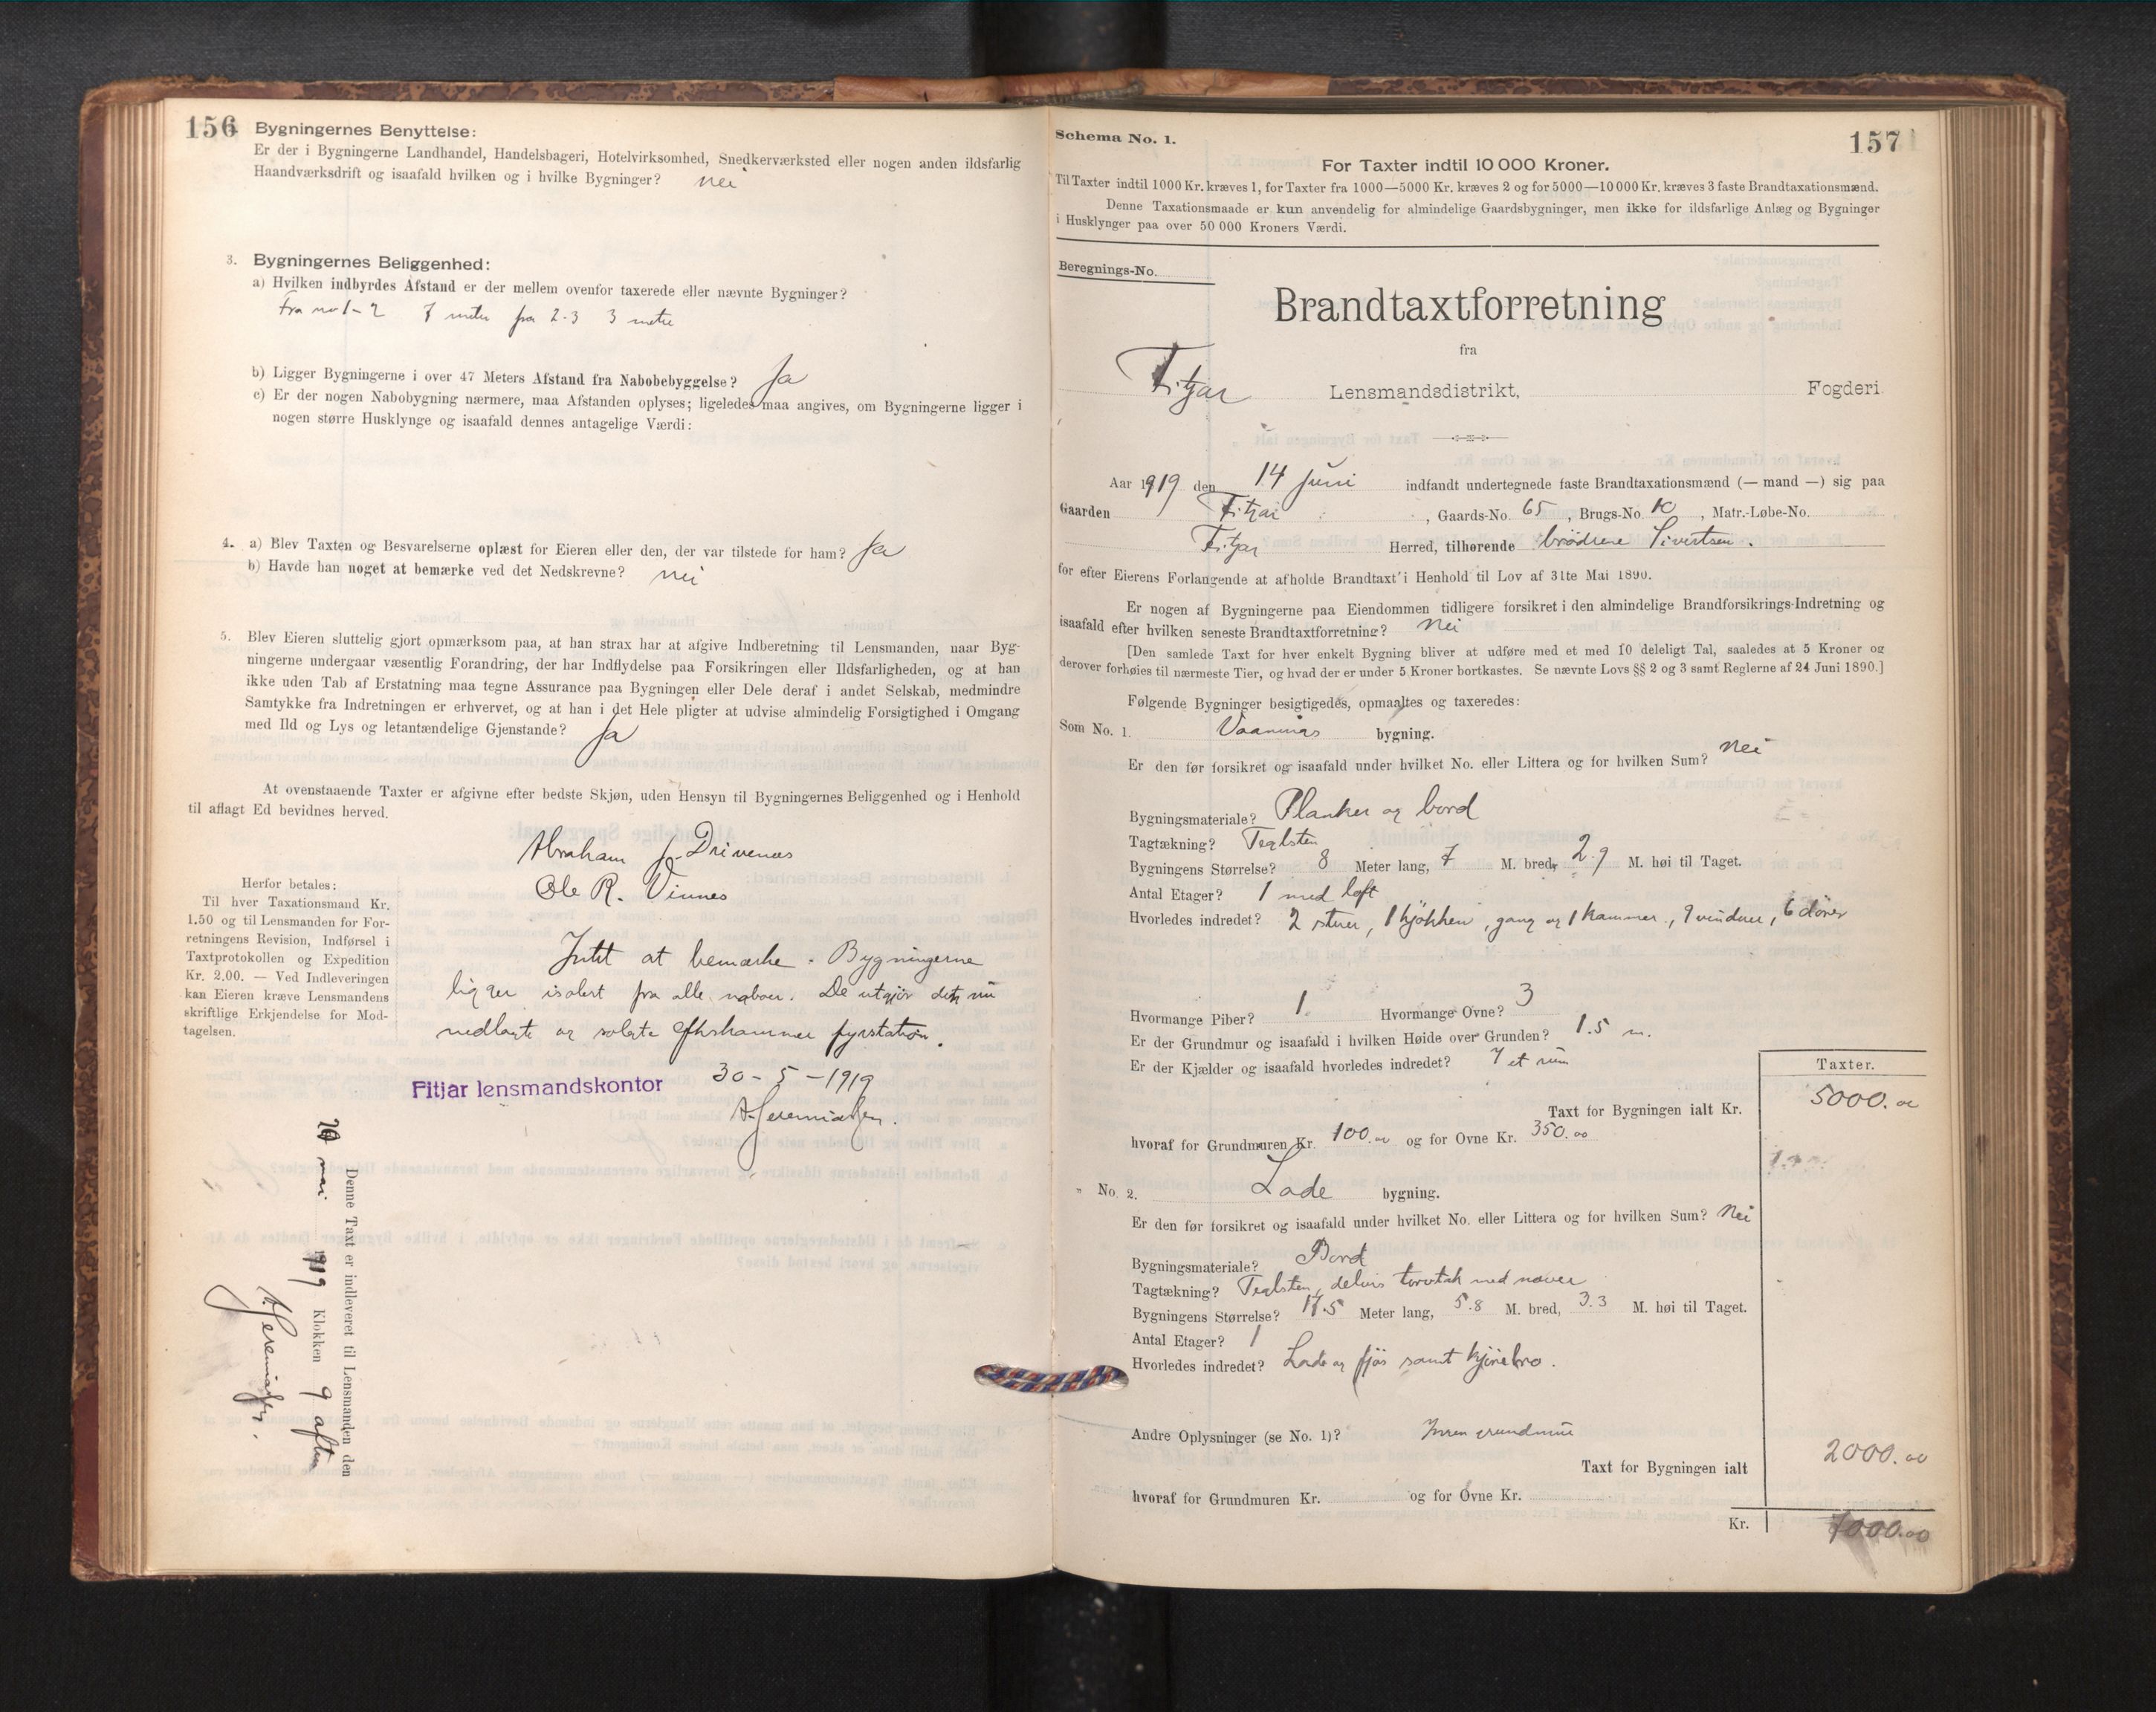 156
Bygningernes Benyttelse:
Er der i Bygningerne Landhandel, Handelsbageri, Hotelvirksomhed, Snedkerværksted eller nogen anden ildsfarlig
Haandværksdrift og isaafald hvilken og i hvilke Bygninger? nei
3. Bygningernes Beliggenhed:
a) Hvilken indbyrdes Afstand er der mellem ovenfor taxerede eller nævnte Bygninger?
Fra no 1-2 7 meter fra 2-3 3 metre
b) Ligger Bygningerne i over 47 Meters Afstand fra Nabobebyggelse? Ja
c) Er der nogen Nabobygning nærmere, maa Afstanden oplyses; ligeledes maa angives, om Bygningerne ligger i
nogen større Husklynge og isaafald dennes antagelige Værdi:
4. a) Blev Taxten og Besvarelserne oplæst for Eieren eller den, der var tilstede for ham? Ja
b) Havde han noget at bemærke ved det Nedskrevne? nei
5. Blev Eieren sluttelig gjort opmærksom paa, at han strax har at afgive Indberetning til Lensmanden, naar Byg-
ningerne undergaar væsentlig Forandring, der har Indflydelse paa Forsikringen eller Ildsfarligheden, og at han
ikke uden Tab af Erstatning maa tegne Assurance paa Bygningen eller Dele deraf i andet Selskab, medmindre
Samtykke fra Indretningen er erhvervet, og at han i det Hele pligter at udvise almindelig Forsigtighed i Omgang
med Ild og Lys og letantændelige Gjenstande? Ja
At ovenstaaende Taxter er afgivne efter bedste Skjøn, uden Hensyn til Bygningernes Beliggenhed og i Henhold
til aflagt Ed bevidnes herved.
Abraham J. Drivenes
Ole R. Vinnes
Herfor betales:
Til hver Taxationsmand Kr.
1.50 og til Lensmanden for For-
retningens Revision, Indførsel i
Taxtprotokollen og Expedition
Kr. 2.00. — Ved Indleveringen
kan Eieren kræve Lensmandens
skriftlige Erkjendelse for Mod-
tagelsen.
Intet at bemærke. Bygningerne
ligger isolert fra alle naboer. De utgjør den nu
nedlagte og solgte fyrstation.
Fitjar lensmandskontor 30-5-1919
A. Jeremiassen.
Denne Taxt er indleveret til Lensmanden den
mai 1919 Klokken 9 aften
A. Jeremiassen.
157
Schema No. 1.
For Taxter indtil 10 000 Kroner.
Til Taxter indtil 1000 Kr. kræves 1, for Taxter fra 1000—5000 Kr. kræves 2 og for 5000—10 000 Kr. kræves 3 faste Brandtaxationsmænd.
Denne Taxationsmaade er kun anvendelig for almindelige Gaardsbygninger, men ikke for ildsfarlige Anlæg og Bygninger
i Husklynger paa over 50 000 Kroners Værdi.
Beregnings-No.
Brandtaxtforretning
fra
Fitjar Lensmandsdistrikt, Fogderi
Aar 1919 den 14 Juni indfandt undertegnede faste Brandtaxationsmænd (— mand —) sig paa
Gaarden Fitjar, Gaards-No. 65, Brugs-No. , Matr.-Løbe-No.
Fitjar Herred, tilhørende brødrene Sivertsen.
for efter Eierens Forlangende at afholde Brandtaxt i Henhold til Lov af 31te Mai 1890.
Er nogen af Bygningerne paa Eiendommen tidligere forsikret i den almindelige Brandforsikrings-Indretning og
isaafald efter hvilken seneste Brandtaxtforretning? Nei
[Den samlede Taxt for hver enkelt Bygning bliver at udføre med et med 10 deleligt Tal, saaledes at 5 Kroner og
derover forhøies til nærmeste Tier, og hvad der er under 5 Kroner bortkastes. Se nævnte Lovs §§ 2 og 3 samt Reglerne af 24 Juni 1890.]
Følgende Bygninger besigtigedes, opmaaltes og taxeredes:
Som No. 1. Vaanings bygning.
Er den før forsikret og isaafald under hvilket No. eller Littera og for hvilken Sum? Nei
Bygningsmateriale? Planker og bord
Tagtækning? Teglsten
Bygningens Størrelse? 8 Meter lang, 7 M. bred, 2.9 M. høi til Taget.
Antal Etager? 1 med loft
Hvorledes indredet? 2 stuer, 1 kjøkken, gang og 1 kammer, 9 vinduer, 6 dører
Hvormange Piber? 1. Hvormange Ovne? 3
Er der Grundmur og isaafald i hvilken Høide over Grunden? 1.5 m.
Er der Kjælder og isaafald hvorledes indredet? I et rum
Taxter.
Taxt for Bygningen ialt Kr. 5000.00
hvoraf for Grundmuren Kr. 100.00 og for Ovne Kr. 350.00
" No. 2. Lade bygning.
Er den før forsikret og isaafald under hvilket No. eller Littera og for hvilken Sum? Nei
Bygningsmateriale? Bord
Tagtækning? Teglsten, delvis torvtak med næver
Bygningens Størrelse? 17.5 Meter lang, 5.8 M. bred, 3.3 M. høi til Taget.
Antal Etager? 1
Hvorledes indredet? Lade og fjøs samt kjørebro.
Andre Oplysninger (se No. 1)? Ingen grundmur
Taxt for Bygningen ialt 2000.00
hvoraf for Grundmuren Kr. og for Ovne Kr.
Kr. 7000.00